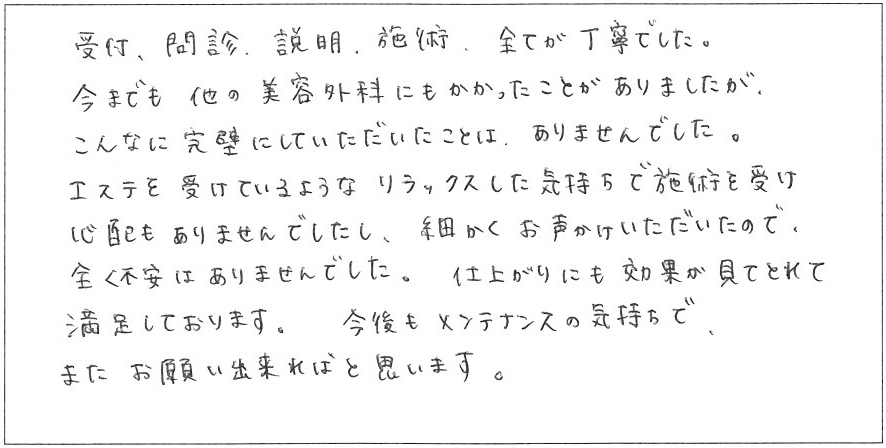 受付、問診、説明、施術、全てが丁寧でした。
今までも他の美容外科にもかかったことがありましたが、
こんなに完璧にしていただいたことは、ありませんでした。
エステを受けているようなリラックスした気持ちで施術を受け
心配もありませんでしたし、細かくお声かけいただいたので、
全く不安はありませんでした。仕上がりにも効果が見てとれて
満足しております。今後もメンテナンスの気持ちで、
またお願い出来ればと思います。